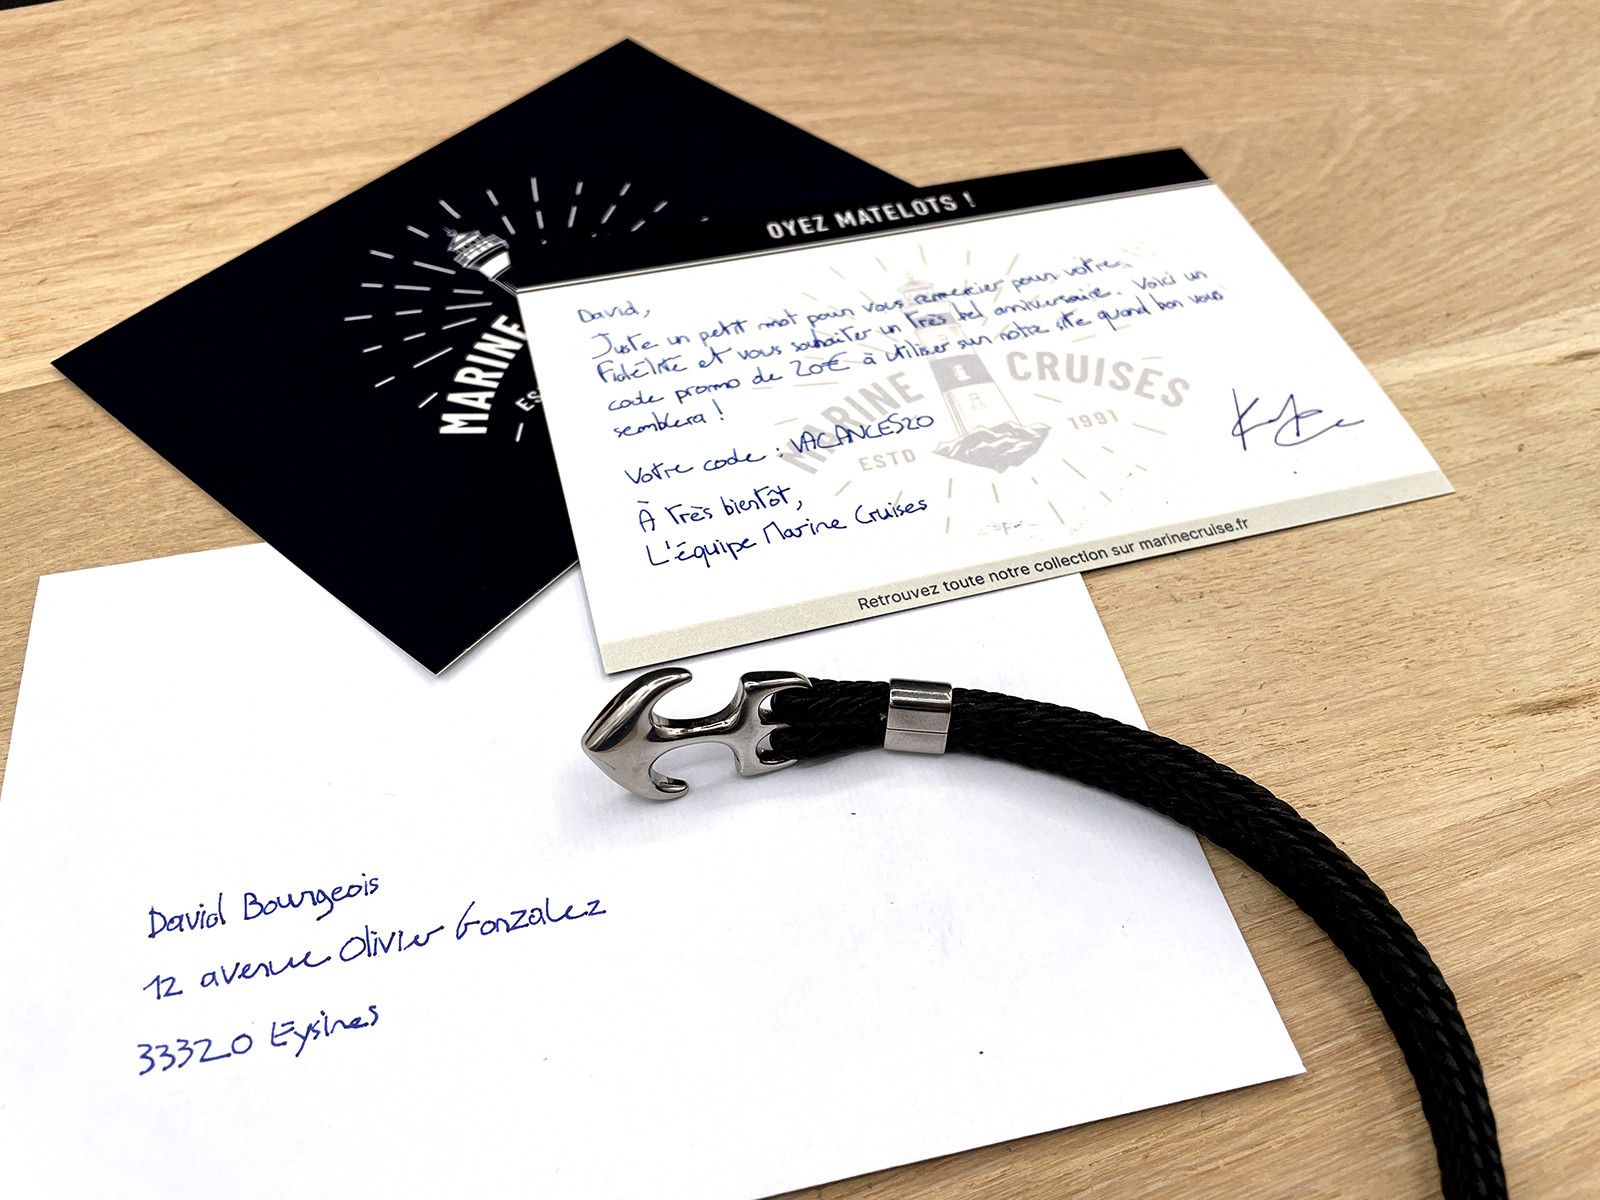 MARINE
ES
OYEZ MATELOTS !
David,
Juste un petit mot pour vous remercier pour votre
Fidélité et vous souhaiter un très bel anniversaire. Voici un
code promo de 20€ à utiliser sur notre site quand bon vous
semblera !
Votre code : VACANCES20
À très bientôt,
L'équipe Marine Cruises
MARINE CRUISES
ESTD 1991
Retrouvez toute notre collection sur marinecruise.fr
David Bourgeois
12 avenue Olivier Gonzalez
33320 Eysines